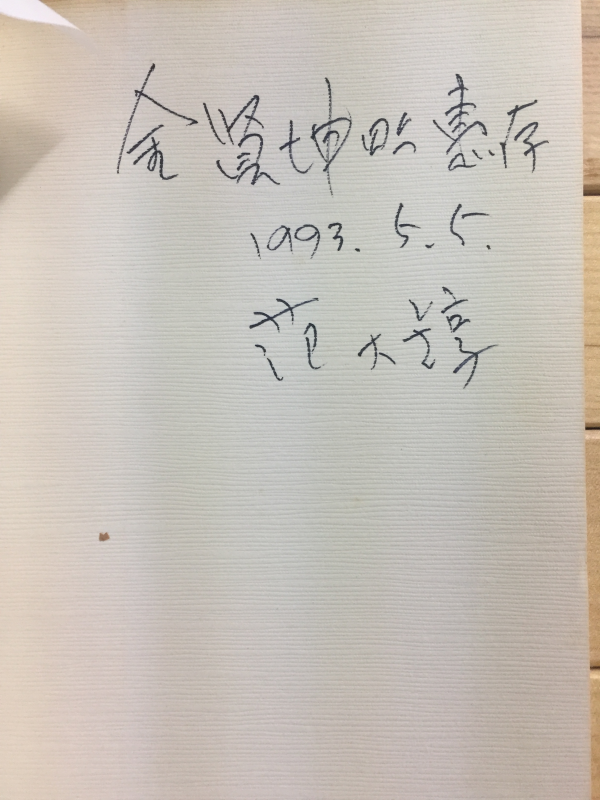 金賢坤 惠存
1993. 5. 5.
范大錞